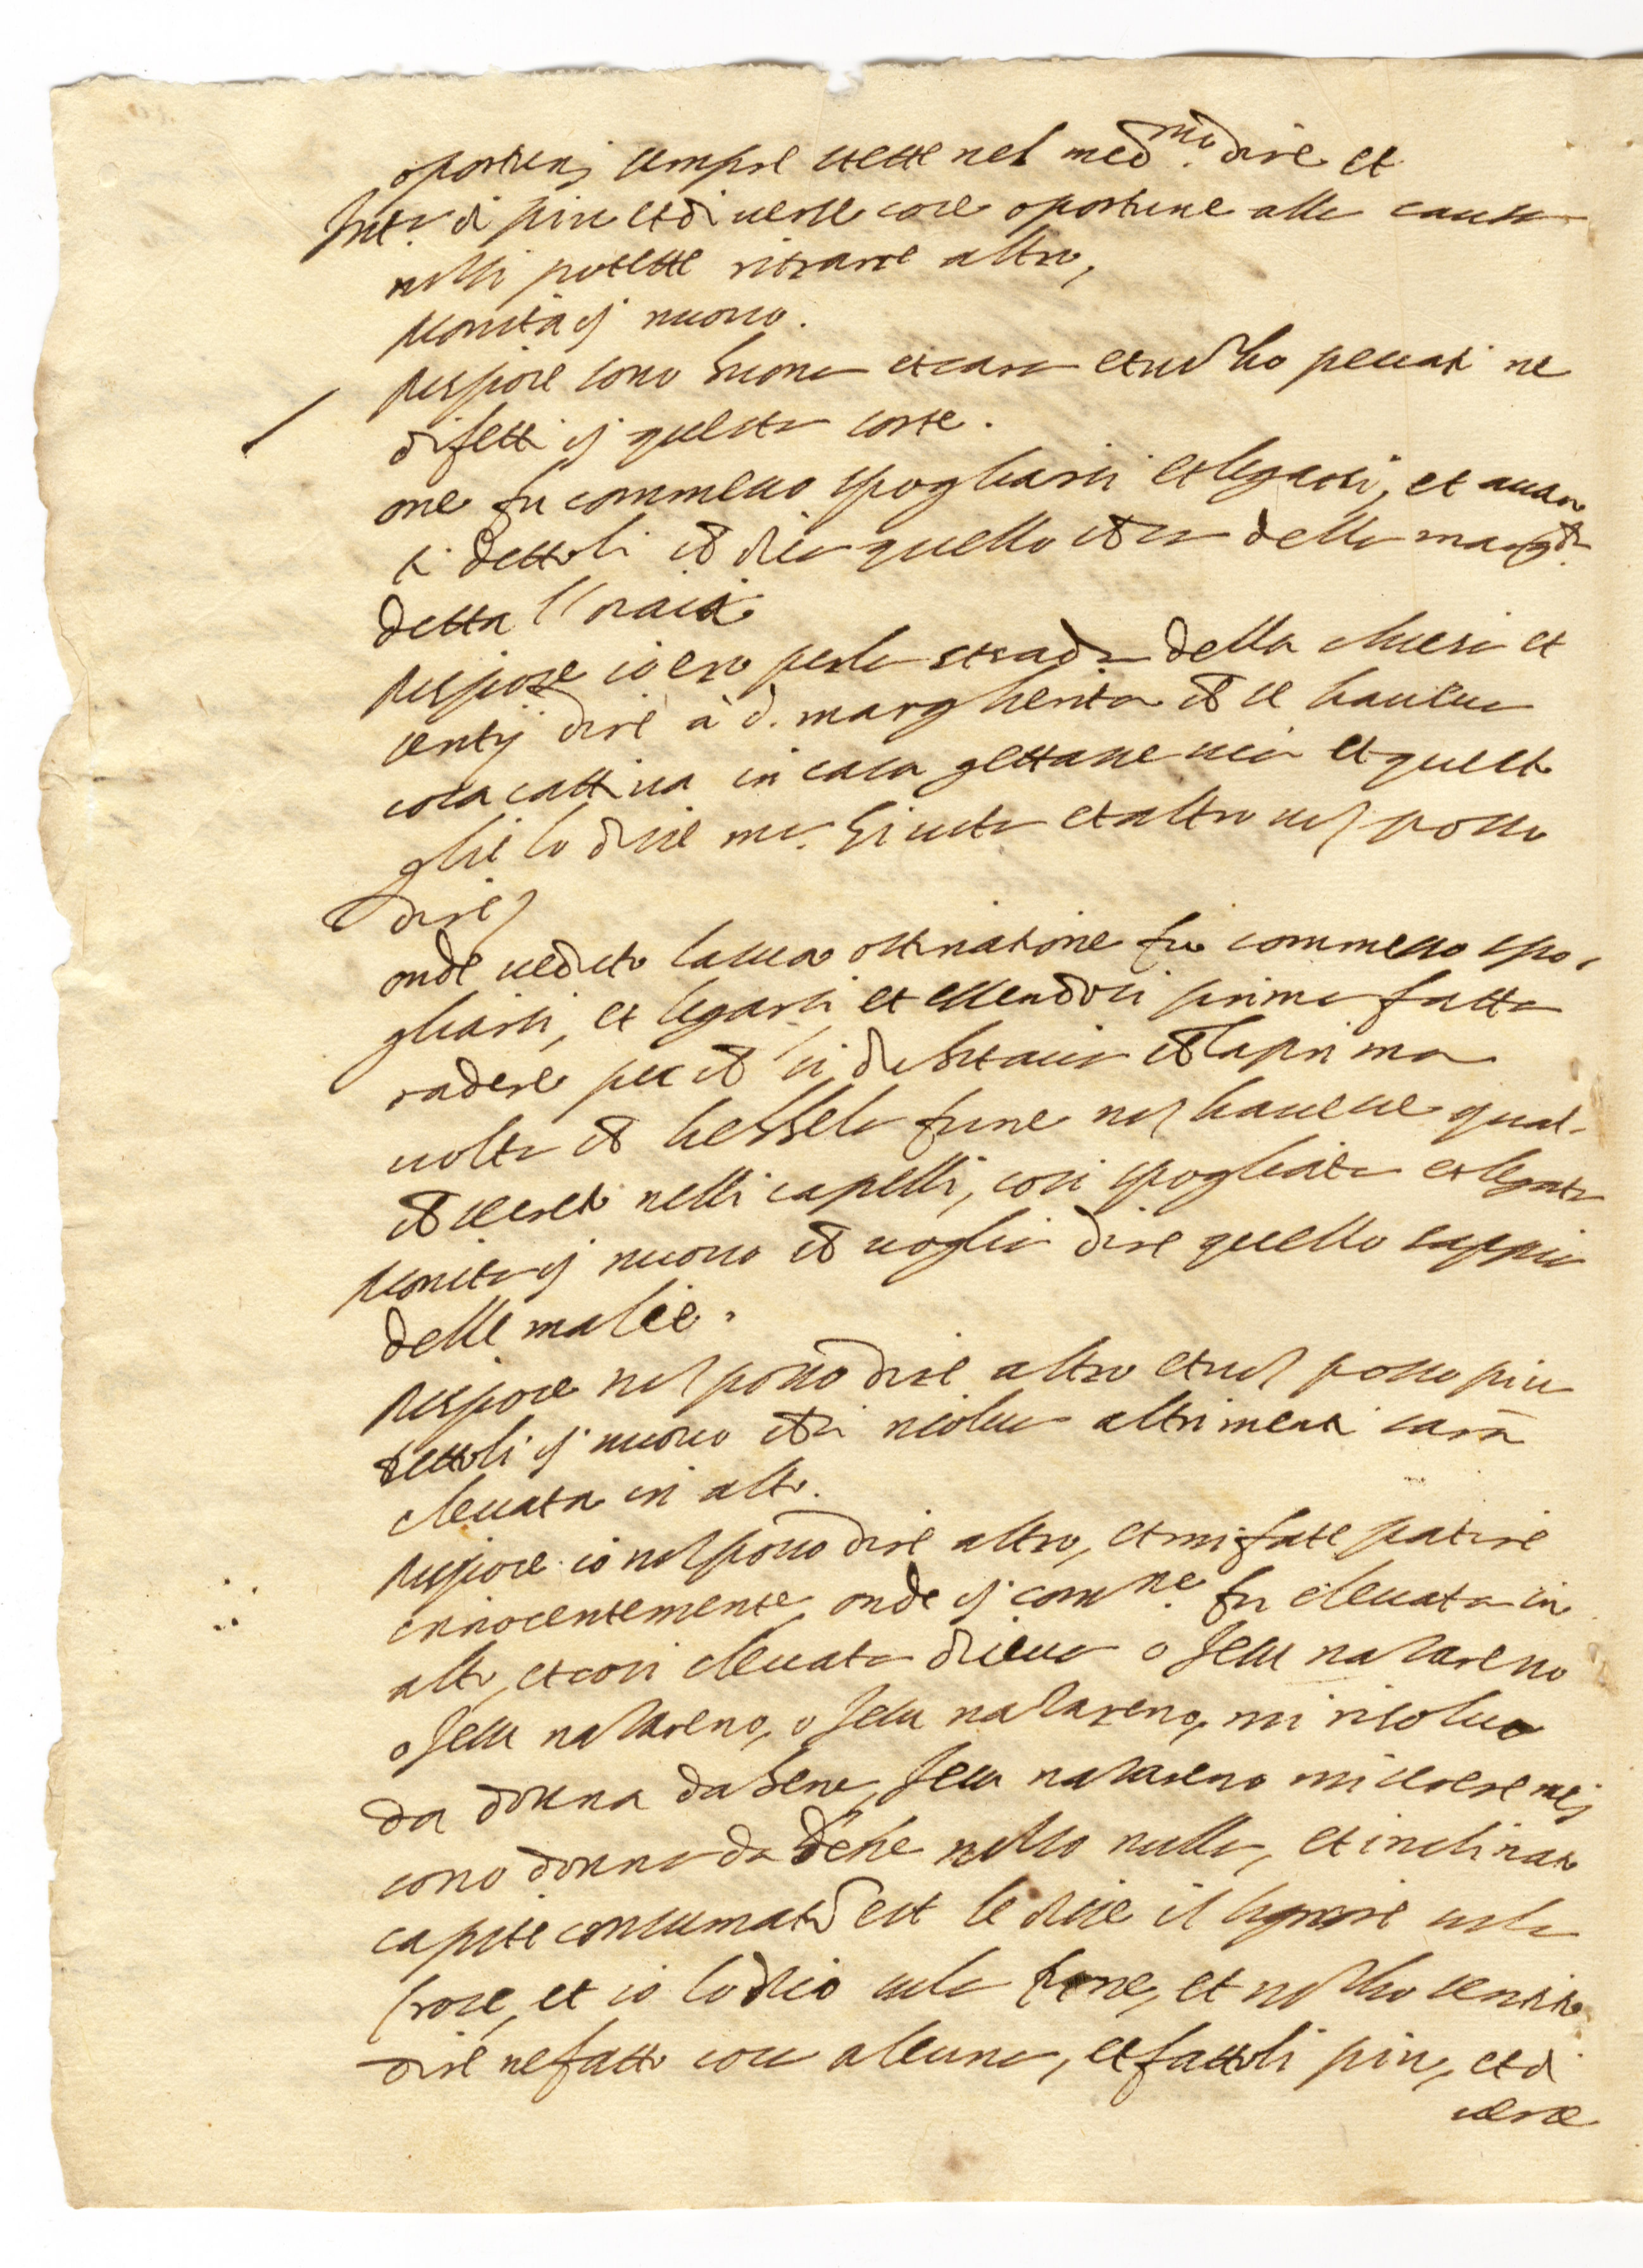 oportuni sempre stette nel med.mo dire et
Int.a di piu et diverse cose oportune alla causa
non si potette ritrarre altro,
monita di nuovo.
Rispose sono buona et cara et non ho peccati ne
difetti di questa sorte.
one fu commesso spogliarsi et legarsi, et avan
ti dettoli che dica quello che sa della marg.ta
detta
Rispose io ero per la strada della chiesa et
senti dire à d. margherita che se haveva
cosa cattiva in casa gettasse via et questo
glie lo disse m.a Giusta et altro non posso
dire
onde veduto la sua ostinatione fu commesso spo,
gliarsi, et legarsi et essendosi prima fatta
radere per che si dubitava che la prima
volta che hebbe la fune non havesse qual-
che secreto nelli capelli, cosi spogliata et legata
monita di nuovo che voglia dire quello sappia
delle malie.
Rispose non posso dire altro et non posso piu
dettoli di nuovo che si risolva altrimenti sarà
elevata in alto.
Rispose io non posso dire altro, et mi fate patire
innocentemente, onde di com.ne fu elevata in
alto, et cosi elevata diceva o Jesu nazareno
o Jesu nazareno, o Jesu nazareno, mi risolvo
da donna da bene, Jesu nazareno miserere mej
sono donna da bene non so nulla, et inclinato
capite consumatum est le disse il signore in la
croce, et io lo dico in la fune, et non ho sentito
dire ne fatto cosa alcuna, et fattoli piu, et di
verse